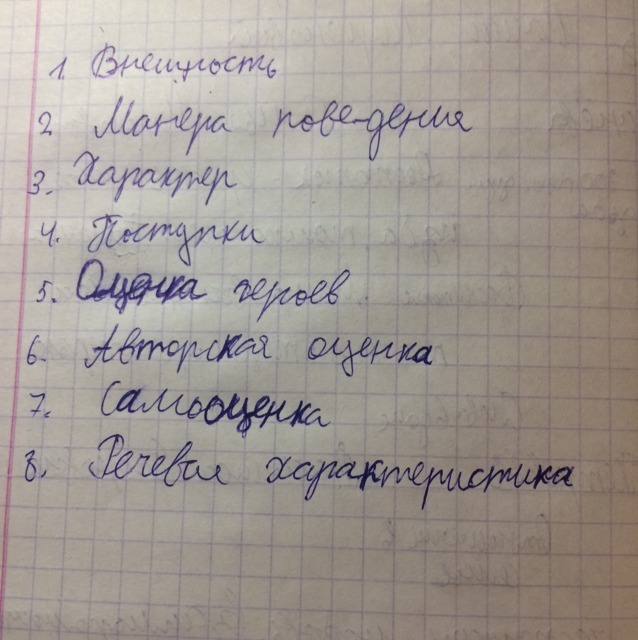 1. Внешность
2 Манера поведения
3. Характер
4. Поступки
5. Оценка героев
6. Авторская оценка
7. Самооценка
8. Речевая характеристика